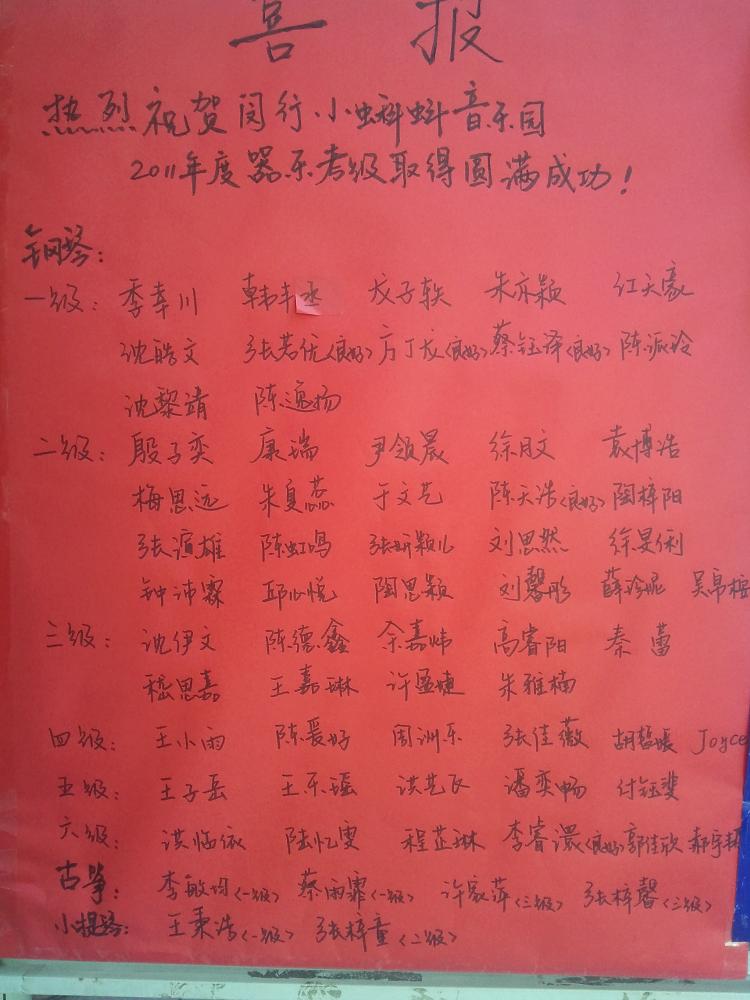 喜 报
热烈祝贺闵行小蝌蚪音乐园
2011年度器乐考级取得圆满成功!
钢琴:
一级: 季幸川 韩丰丞 朱亦颖
沈皓文 张若优<良好> 方丁龙<良好> 蔡钰泽<良好> 陈派玲
沈黎靖 陈逸扬
二级: 殷子奕 康瑞 尹领晟 徐月文 袁博浩
梅思远 朱夏蕊 于文艺 陈天浩<良好> 陶梓阳
张谊雄 陈虹鸣 张妍颖儿 刘思然 徐旻俐
钟沛霖 邱心悦 陶思颖 刘馨彤 薛珍妮
三级: 沈伊文 陈德鑫 余嘉炜 高睿阳 秦蕾
嵇思嘉 王嘉琳 许盈婕 朱雅楠
四级: 王小雨 陈爰好 周洲乐 张佳薇 Joyce
五级: 王子岳 王乐瑶 洪艺辰 潘奕畅 付钰斐
六级: 洪临依 陆忆雯 程芷琳 李睿澴<良好> 郭佳欣
古筝: 李敏均<一级> 蔡雨霏<一级> 许家萍<三级> 张梓馨<三级>
小提琴: 王秉浩<一级> 张梓童<二级>